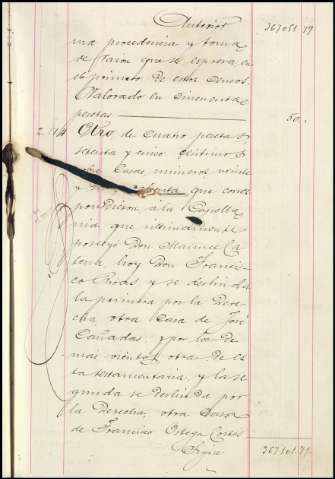 Anterior 367051.79
ma procedencia y toma
de razon que se espresa en
el primero de estos censos.
Valorado en cincuenta
pesetas 50.
Otro de cuatro pesetas
setenta y cinco centimos
casas, numeros veinte
y que corres
pondieron a la Capella
nia que ultimamente
poseyó Don Manuel Ca
hoy Don Francis
co y se deslinda
la primera por la dere
cha otra Casa de José
Cañadas, y por los de
mas vientos otra de es
ta testamentaria, y la se
gunda se deslinda por
la derecha, otra Casa
de Francisco Ortega Cortés
Sigue 367101.79